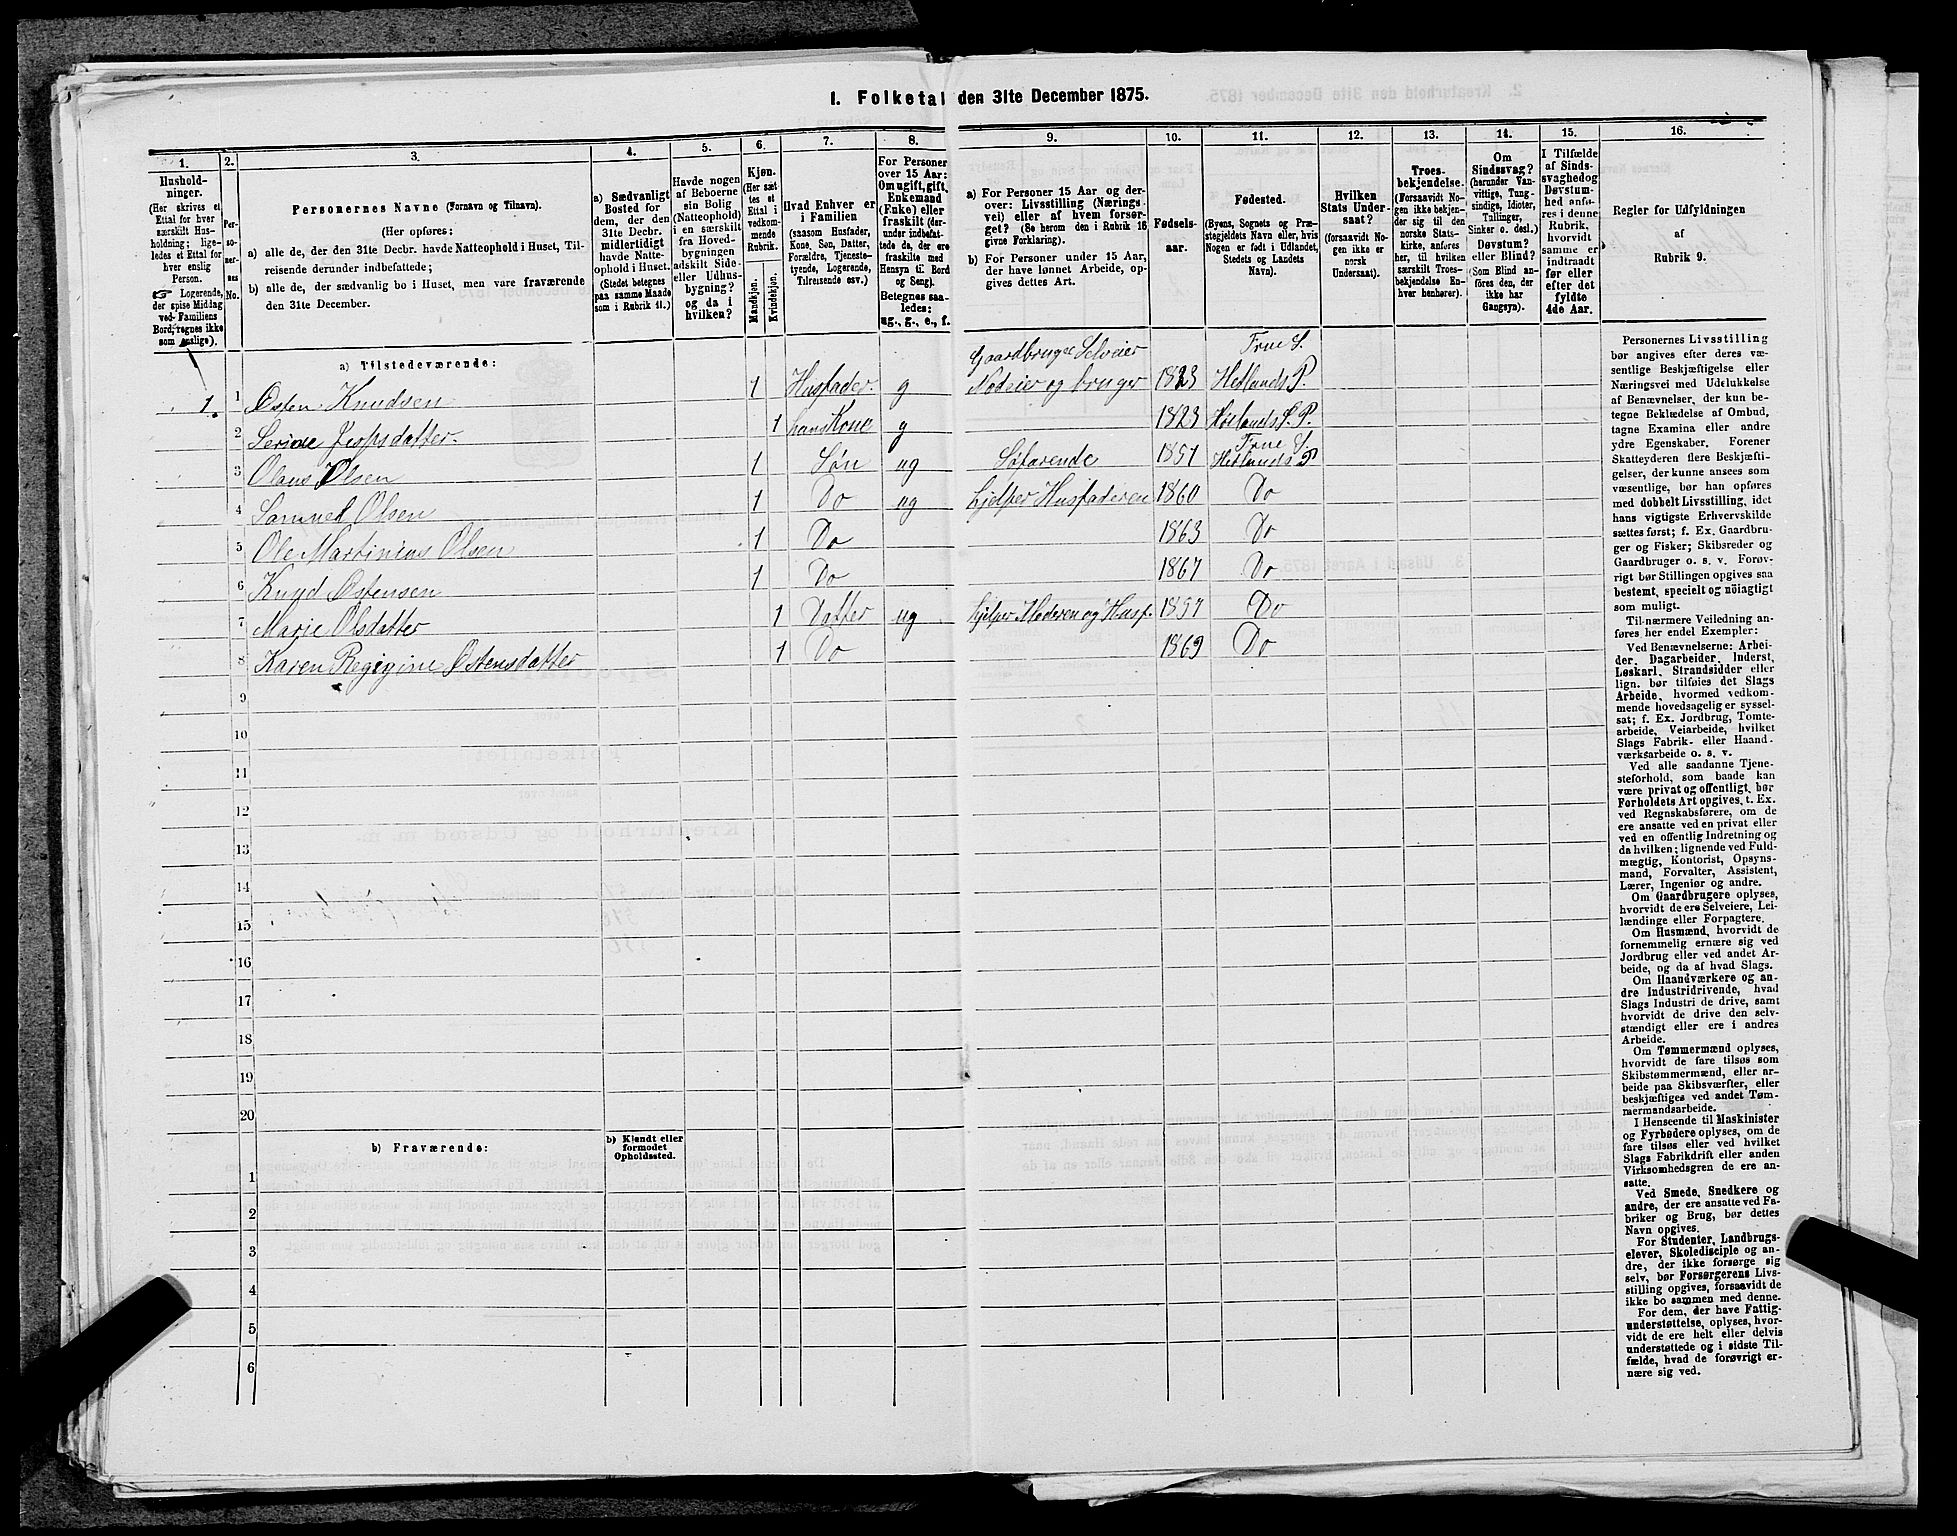 I. Folketal den 31te December 1875.
1. 2. 3. 4. 5. 6. 7. 8. 9. 10. 11. 12. 13. 14. 15. 16.
Hushold-
ninger.
(Her skrives et
Ettal for hver
særskilt Hus-
holdning; lige-
ledes et Ettal for
hver enslig
Person.
☞ Logerende,
der spise Middag
ved Familiens
Bord, regnes ikke
som enslige).
Per-
so-
ner-
nes
No.
Personernes Navne (Fornavn og Tilnavn).
(Her opføres:
a) alle de, der den 31te Decbr. havde Natteophold i Huset, Til-
reisende derunder indbefattede;
b) alle de, der sædvanlig bo i Huset, men vare fraværende
den 31te December.
a) Sædvanligt
Bosted for
dem, der den
31te Decbr.
midlertidigt
havde Natte-
ophold i Huset.
(Stedet betegnes
paa samme Maade
som i Rubrik 11.)
Havde nogen
af Beboerne
sin Bolig
(Natteophold)
i en særskilt
fra Hoved-
bygningen
adskilt Side-
eller Udhus-
bygning?
og da i
hvilken?
Kjøn.
(Her sæt-
tes et
Ettal i
vedkom-
mende
Rubrik.
Mandkjøn.
Kvindekjøn.
Hvad Enhver er
i Familien
(saasom Husfader,
Kone, Søn, Datter,
Forældre, Tjeneste-
tyende, Logerende,
Tilreisende osv.)
For Personer
over 15 Aar:
Om ugift, gift,
Enkemand
(Enke) eller
fraskilt (der-
under indbefat-
tede de, der ere
fraskilte med
Hensyn til Bord
og Seng).
Betegnes saa-
ledes:
ug., g., e., f.
a) For Personer 15 Aar og der-
over: Livsstilling (Nærings-
vei) eller af hvem forsør-
get? (Se herom den i Rubrik 16
givne Forklaring).
b) For Personer under 15 Aar,
der have lønnet Arbeide, op-
gives dettes Art.
Fødsels-
aar.
Fødested.
(Byens, Sognets og Præ-
stegjeldets Navn eller, hvis
Nogen er født i Udlandet,
Stedets og Landets
Navn).
Hvilken
Stats Under-
saat?
(forsaavidt No-
gen ikke er
norsk
Undersaat).
Troes-
bekjendelse.
(Forsaavidt No-
gen ikke bekjen-
der sig til den
norske Stats-
kirke, anføres
her, til hvilken
særskilt Troes-
bekjendelse En-
hver henhører).
Om
Sindssvag?
(herunder Van-
vittige, Tung-
sindige, Idioter,
Tullinger,
Sinker o. desl.)
Døvstum?
eller Blind?
(Som Blind an-
føres den, der
ikke har
Gangsyn).
I Tilfælde
af Sinds-
svaghed og
Døvstum-
hed anfø-
res i denne
Rubrik,
hvorvidt
samme er
indtraadt
før eller
efter det
fyldte
4de Aar.
Regler for Udfyldningen
af
Rubrik 9.
a) Tilstedeværende:
Gaardbruger Selveier Frue S.
1. 1 Østen Knudsen 1 Husfader g Nodeier og bruger 1823 Hetlands P.
2 Serine Jeopsdatter 1 hans Kone g 1823 Høilands S. P.
Frue S.
3 Olaus Olsen 1 Søn ug Søfarende 1857 Hetlands P
4 Samuel Olsen 1 Do ug hjelper Husfaderen 1860 Do
5 Ole Martinius Olsen 1 Do 1863 Do
6 Knud Østensen 1 Do 1867 Do
7 Marie Olsdatter 1 Datter ug hjelper Moderen og Husf. 1857 Do
8 Karen Regigine Østensdatter 1 Do 1869 Do
9
10
11
12
13
14
15
16
17
18
19
20
b) Fraværende:
b) Kjendt eller
formodet
Opholdssted.
1
2
3
4
5
6
Personernes Livsstilling
bør angives efter deres væ-
sentlige Beskjæftigelse eller
Næringsvei med Udelukkelse
af Benævnelser, der kun be-
tegne Beklædelse af Ombud,
tagne Examina eller andre
ydre Egenskaber. Forener
Skatteyderen flere Beskjæfti-
gelser, der kunne ansees som
væsentlige, bør han opføres
med dobbelt Livsstilling, idet
hans vigtigste Erhvervskilde
sættes først; f. Ex. Gaardbru-
ger og Fisker; Skibsreder og
Gaardbruger o. s. v. Forøv-
rigt bør Stillingen opgives saa
bestemt, specielt og nöiagtigt
som muligt.
Til nærmere Veiledning an-
føres her endel Exempler:
Ved Benævnelserne: Arbei-
der, Dagarbeider, Inderst,
Løskarl, Strandsidder eller
lign. bør tilføies det Slags
Arbeide, hvormed vedkom-
mende hovedsagelig er syssel-
sat; f. Ex. Jordbrug, Tomte-
arbeide, Veiarbeide, hvilket
Slags Fabrik- eller Haand-
værksarbeide o. s. v.
Ved alle saadanne Tjene-
steforhold, som baade kan
være privat og offentligt, bør
Forholdets Art opgives, t. Ex.
ved Regnskabsførere, om de
ere ansatte ved en privat eller
ved en offentlig Indretning og
da hvilken; lignende ved Fuld-
mægtig, Kontorist, Opsyns-
mand, Forvalter, Assistent,
Lærer, Ingeniør og andre.
Om Gaardbrugere oplyses,
hvorvidt de ere Selveiere, Lei-
lændinge eller Forpagtere.
Om Husmænd, hvorvidt de
fornemmelig ernære sig ved
Jordbrug eller ved andet Ar-
beide, og da af hvad Slags.
Om Haandværkere og an-
dre Industridrivende, hvad
Slags Industri de drive, samt
hvorvidt de drive den selv-
stændigt eller ere i andres
Arbeide.
Om Tømmermænd oplyses,
hvorvidt de fare tilsøs som
Skibstømmermænd, eller ar-
beide paa Skibsværfter, eller
beskjæftiges ved andet Tøm-
mermandsarbeide.
I Henseende til Maskinister
og Fyrbødere oplyses, om de
fare tilsøs eller ved hvilket
Slags Fabrikdrift eller anden
Virksomhedsgren de ere an-
satte.
Ved Smede, Snedkere og
andre, der ere ansatte ved Fa-
briker og Brug, bør dettes
Navn opgives.
For Studenter, Landbrugs-
elever, Skoledisciple og an-
dre, der ikke forsørge sig
selv, bør Forsørgerens Livs-
stilling opgives, forsaavidt de
ikke bo sammen med denne.
For dem, der have Fattig-
understøttelse, oplyses, hvor-
vidt de ere helt eller delvis
understøttede og i sidste Til-
fælde, hvad de forøvrigt er-
nære sig ved.